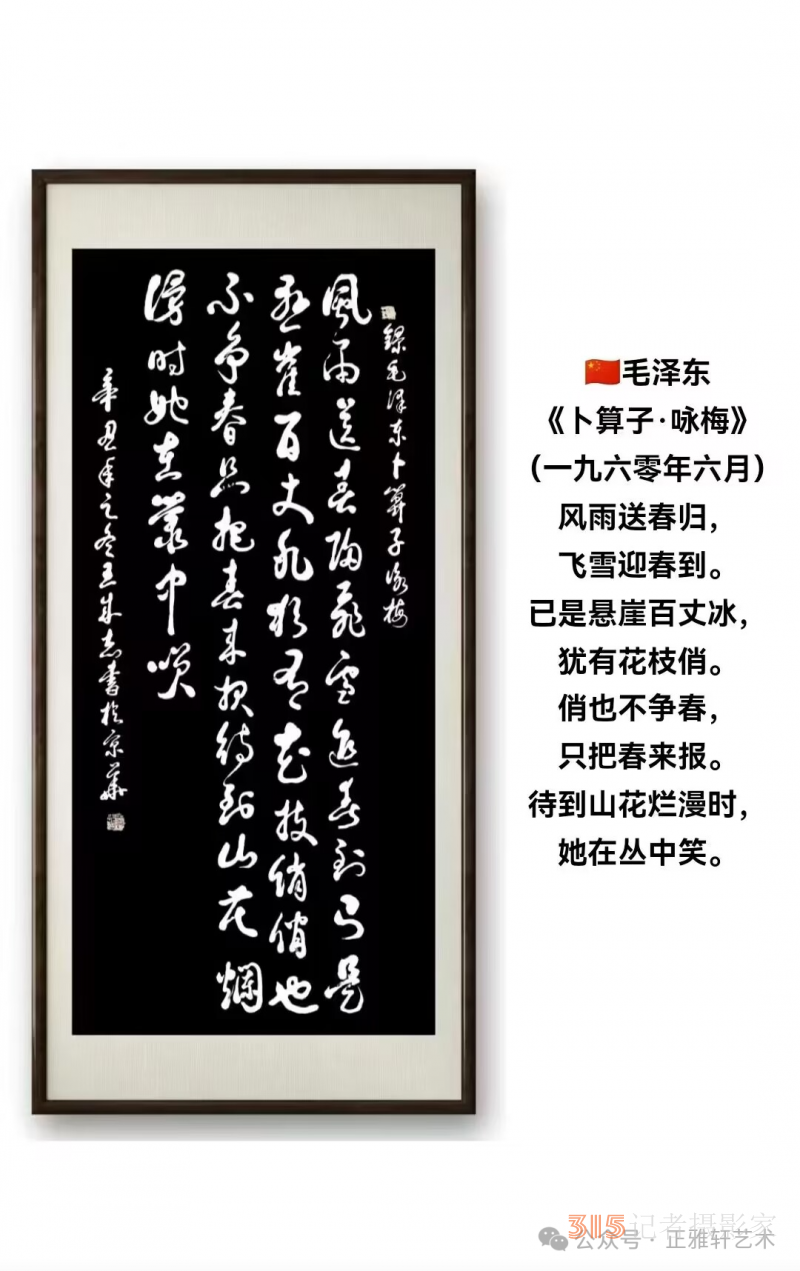 録毛泽东卜算子詠梅
風雨送春归飛雪迎春到已是
悬崖百丈冰犹有花枝俏俏也
不争春只把春来报待到山花爛
漫时她在叢中咲
辛丑年之冬王志書於京華
🇨🇳毛泽东
《卜算子·咏梅》
（一九六零年六月）
风雨送春归，
飞雪迎春到。
已是悬崖百丈冰，
犹有花枝俏。
俏也不争春，
只把春来报。
待到山花烂漫时，
她在丛中笑。
315记者摄影家
公众号·正雅轩艺术